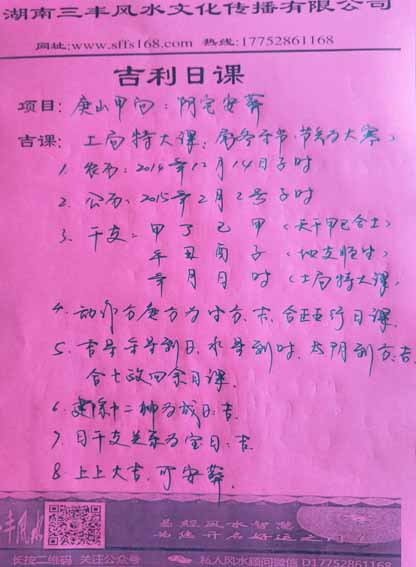 湖南三丰风水文化传播有限公司
网址:www.sffs168.com 热线:17752861168
吉利日课
项目: 庚山甲向: 阴宅安葬
吉课: 上局特大课, 节气为大寒
1. 农历: 2014年12月14日子时
2. 公历: 2015年2月2号子时
3. 干支: 甲 丁 己 甲 (天干甲己合土)
午 丑 酉 子
年 月 日 时 (土局特大课)
4. 动作方庚方为 方, 吉, 合正五行日课.
5. 吉星 到日, 水星到时, 太阴到方, 吉
合七政四余日课.
6. 建除十二神为成日: 吉
7. 日干支关系为宝日: 吉.
8. 上上大吉, 可安葬.
丰风水
易经风水智慧
凭借开名好运之门
长按二维码 关注公众号 私人风水顾问微信 D17752861168